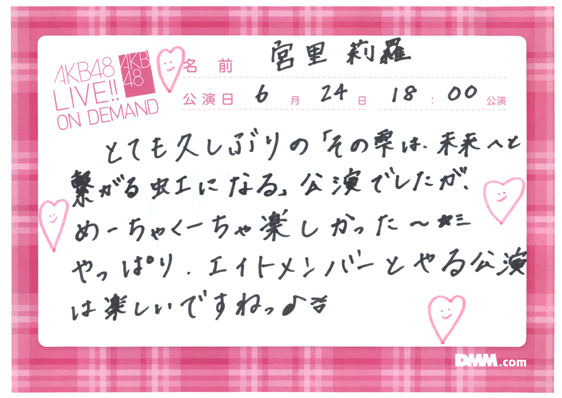 AKB48
LIVE!!
ON DEMAND
AKB
48
名前 宮里莉羅
公演日 6月24日 18:00公演
とても久しぶりの「その雫は、未来へと
繋がる虹になる」公演でしたが、
めーちゃくーちゃ楽しかった〜
やっぱり、エイトメンバーとやる公演
は楽しいですねっ♪
DMM.com